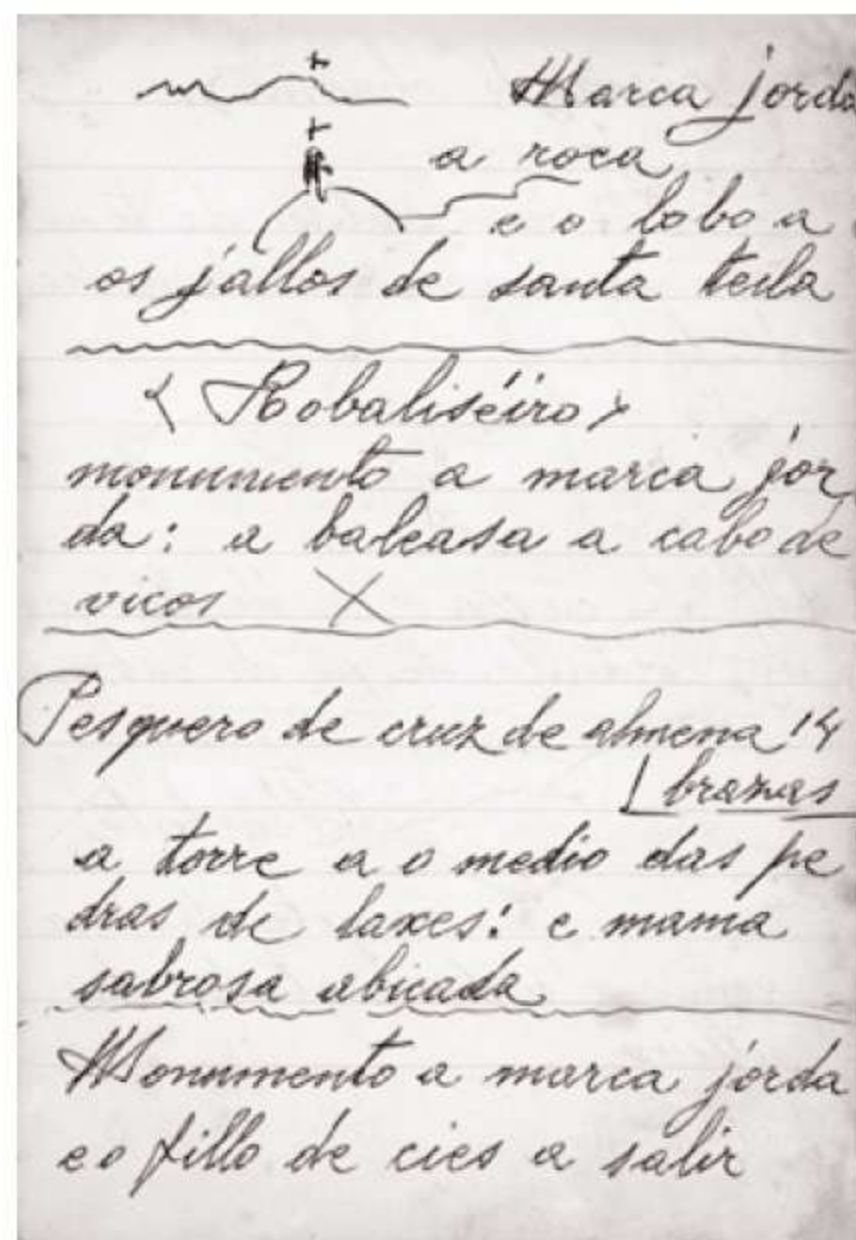 Marca jorda
a roca
e o lobo a
os jallos de santa tecla
< Robaliséiro >
monumento a marca jor
da: a baleasa a cabo de
vicos X
Pesquero de cruz de almena 14
brazas
a torre a o medio das pe
dras de laxes: e mama
sabrosa abicada
Monumento a marca jorda
e o fillo de cies a salir